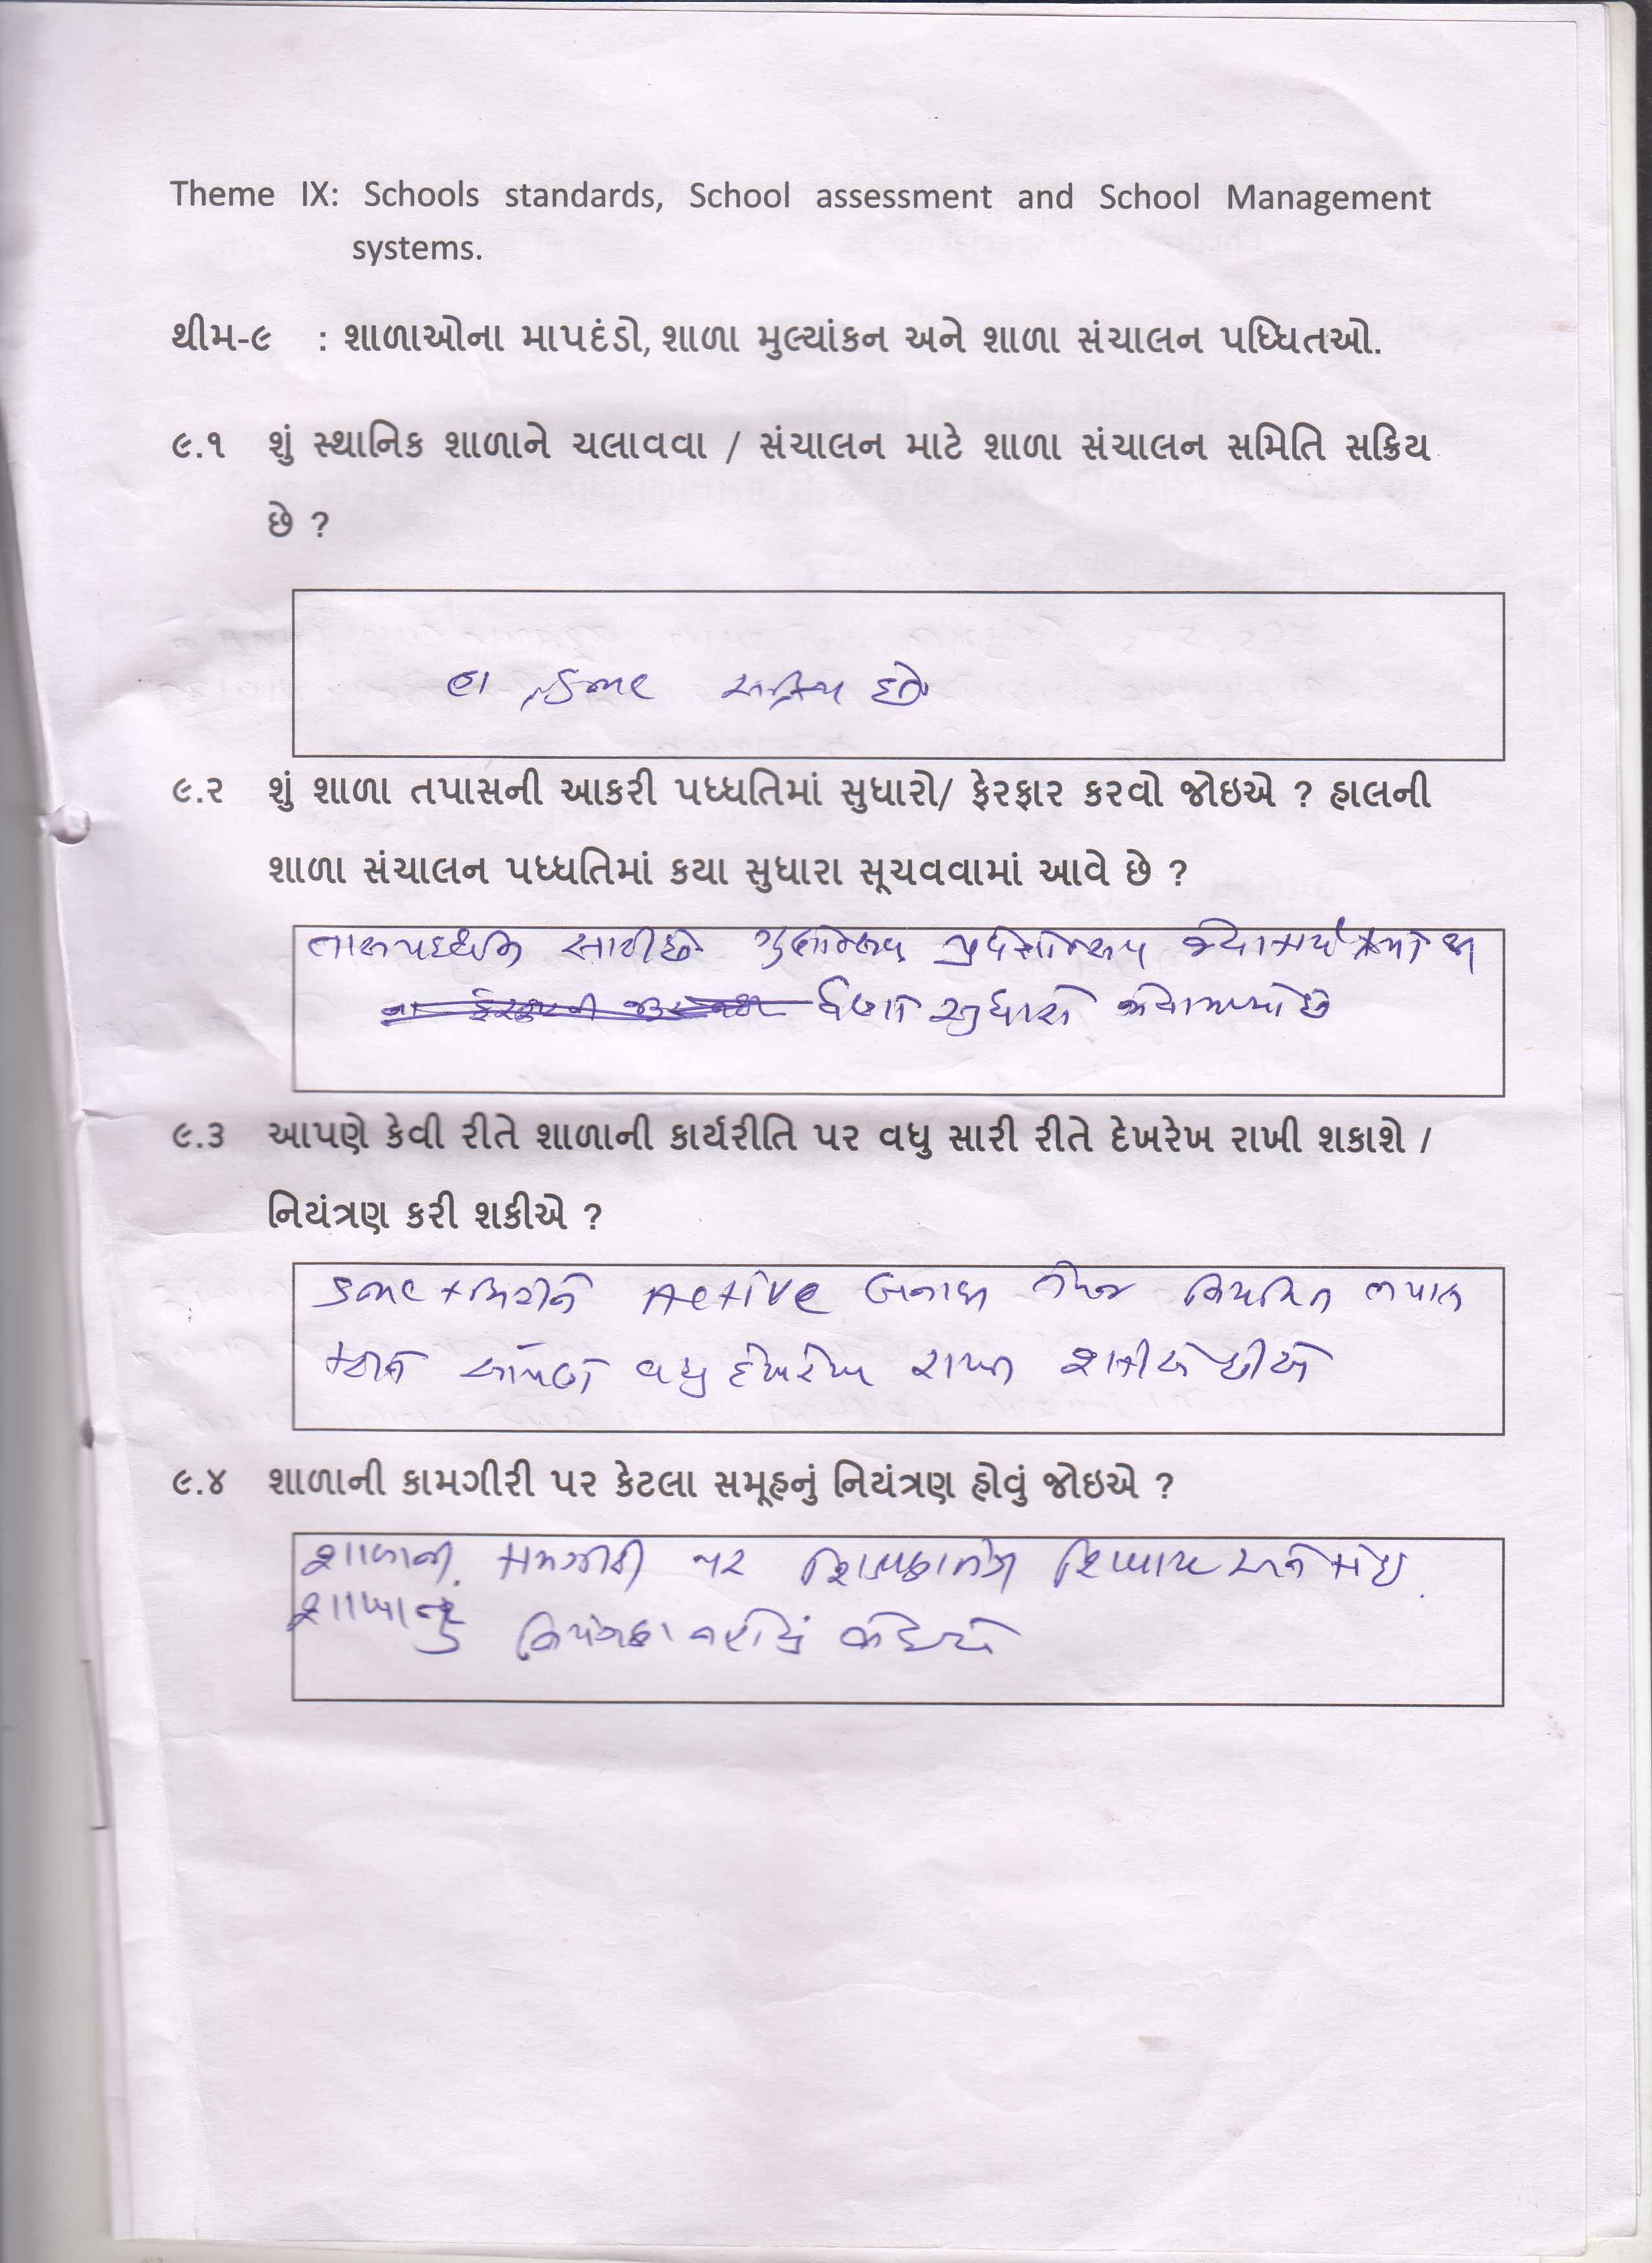 Theme IX: Schools standards, School assessment and School Management
systems.
થીમ-૯ : શાળાઓના માપદંડો, શાળા મુલ્યાંકન અને શાળા સંચાલન પધ્ધિતઓ.
૯.૧ શું સ્થાનિક શાળાને ચલાવવા / સંચાલન માટે શાળા સંચાલન સમિતિ સક્રિય
છે ?
હા સક્રિય છે
૯.૨ શું શાળા તપાસની આકરી પધ્ધતિમાં સુધારો/ ફેરફાર કરવો જોઇએ ? હાલની
શાળા સંચાલન પધ્ધતિમાં કયા સુધારા સૂચવવામાં આવે છે ?
સારી છે
ઘણો સુધારો જોવા મળ્યો છે
૯.૩ આપણે કેવી રીતે શાળાની કાર્યરીતિ પર વધુ સારી રીતે દેખરેખ રાખી શકાશે /
નિયંત્રણ કરી શકીએ ?
Active બનાવી તેમજ નિયમિત તપાસ
કરીને આપણે વધુ દેખરેખ રાખી શકીએ છીએ
૯.૪ શાળાની કામગીરી પર કેટલા સમૂહનું નિયંત્રણ હોવું જોઇએ ?
શાળાની કામગીરી પર સિવાય અને કોઇ
શાખાનું નિયંત્રણ ન હોવું જોઇએ